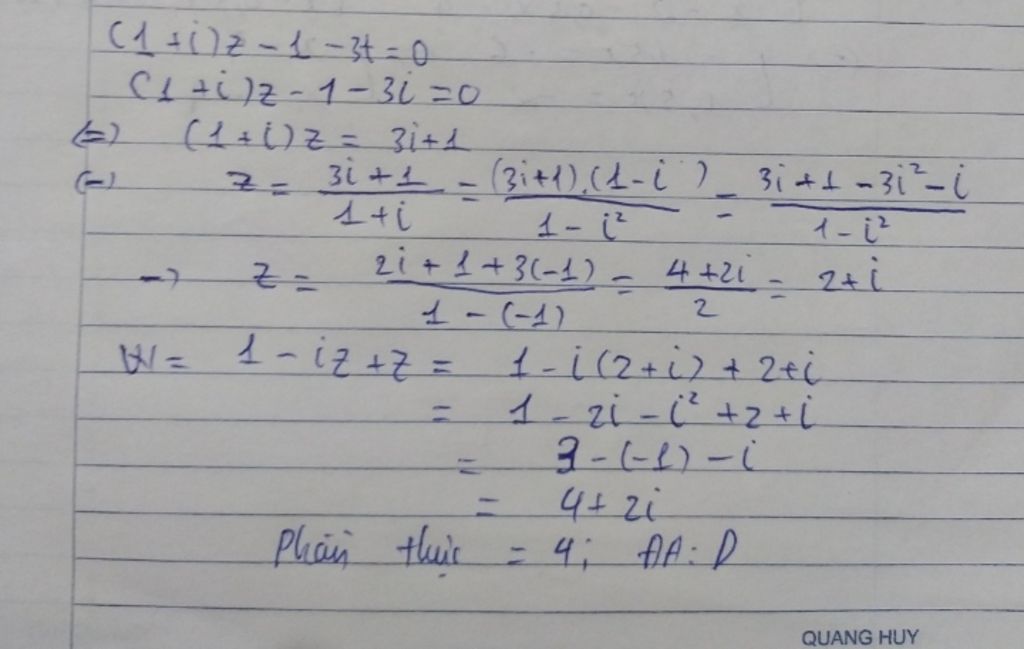 (1 + i)z - 1 - 3t = 0
(1 + i)z - 1 - 3i = 0
(=) (1 + i)z = 3i + 1
(=) z = \frac{3i + 1}{1 + i} = \frac{(3i+1).(1-i)}{1 - i²} = \frac{3i + 1 - 3i² - i}{1 - i²}
→ z = \frac{2i + 1 + 3(-1)}{1 - (-1)} = \frac{4 + 2i}{2} = 2 + i
W = 1 - iz + z = 1 - i(2+i) + 2+i
= 1 - 2i - i² + 2 + i
= 3 - (-1) - i
= 4 + 2i
Phần thực = 4; ĐA: D
QUANG HUY